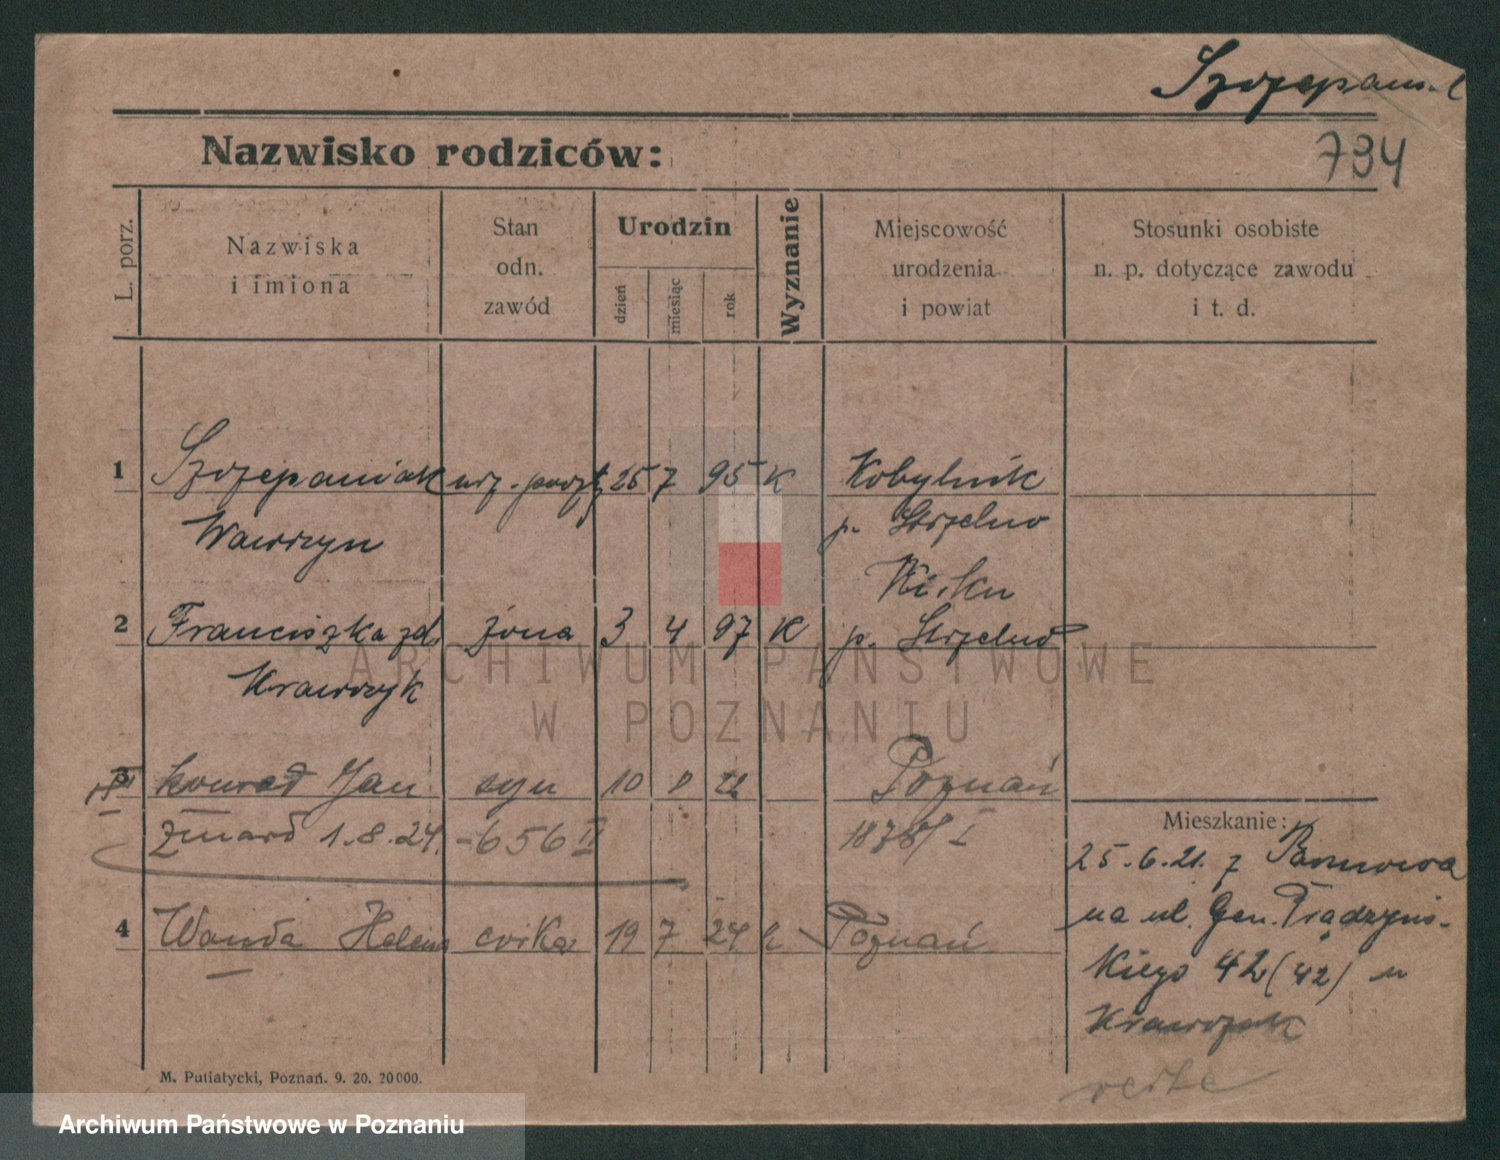 Szczepani
734
Nazwisko rodziców:
L. porz.
Nazwiska
i imiona
Stan
odn.
zawód
Urodzin
dzień
miesiąc
rok
Wyznanie
Miejscowość
urodzenia
i powiat
Stosunki osobiste
n. p. dotyczące zawodu
i t. d.
1 Szczepaniak urz. poczt. 25 7 95 K Kobylnik
Wawrzyn p. Strzelno
2 Franciszka zd. żona 3 4 97 K p. Strzelno
Krawczyk
3 Konrad Jan syn 10 8 22 Poznań
zmarł 1.8.24. - 656 II 1878/I
4 Wanda Helena córka 19 7 24 k Poznań
Mieszkanie:
25.6.21. z
na ul. Gen. Prądzyńs-
kiego 42 (42) u
Krawczyk
verte
M. Putiatycki, Poznań. 9. 20. 20000.
ARCHIWUM PAŃSTWOWE
W POZNANIU
Archiwum Państwowe w Poznaniu